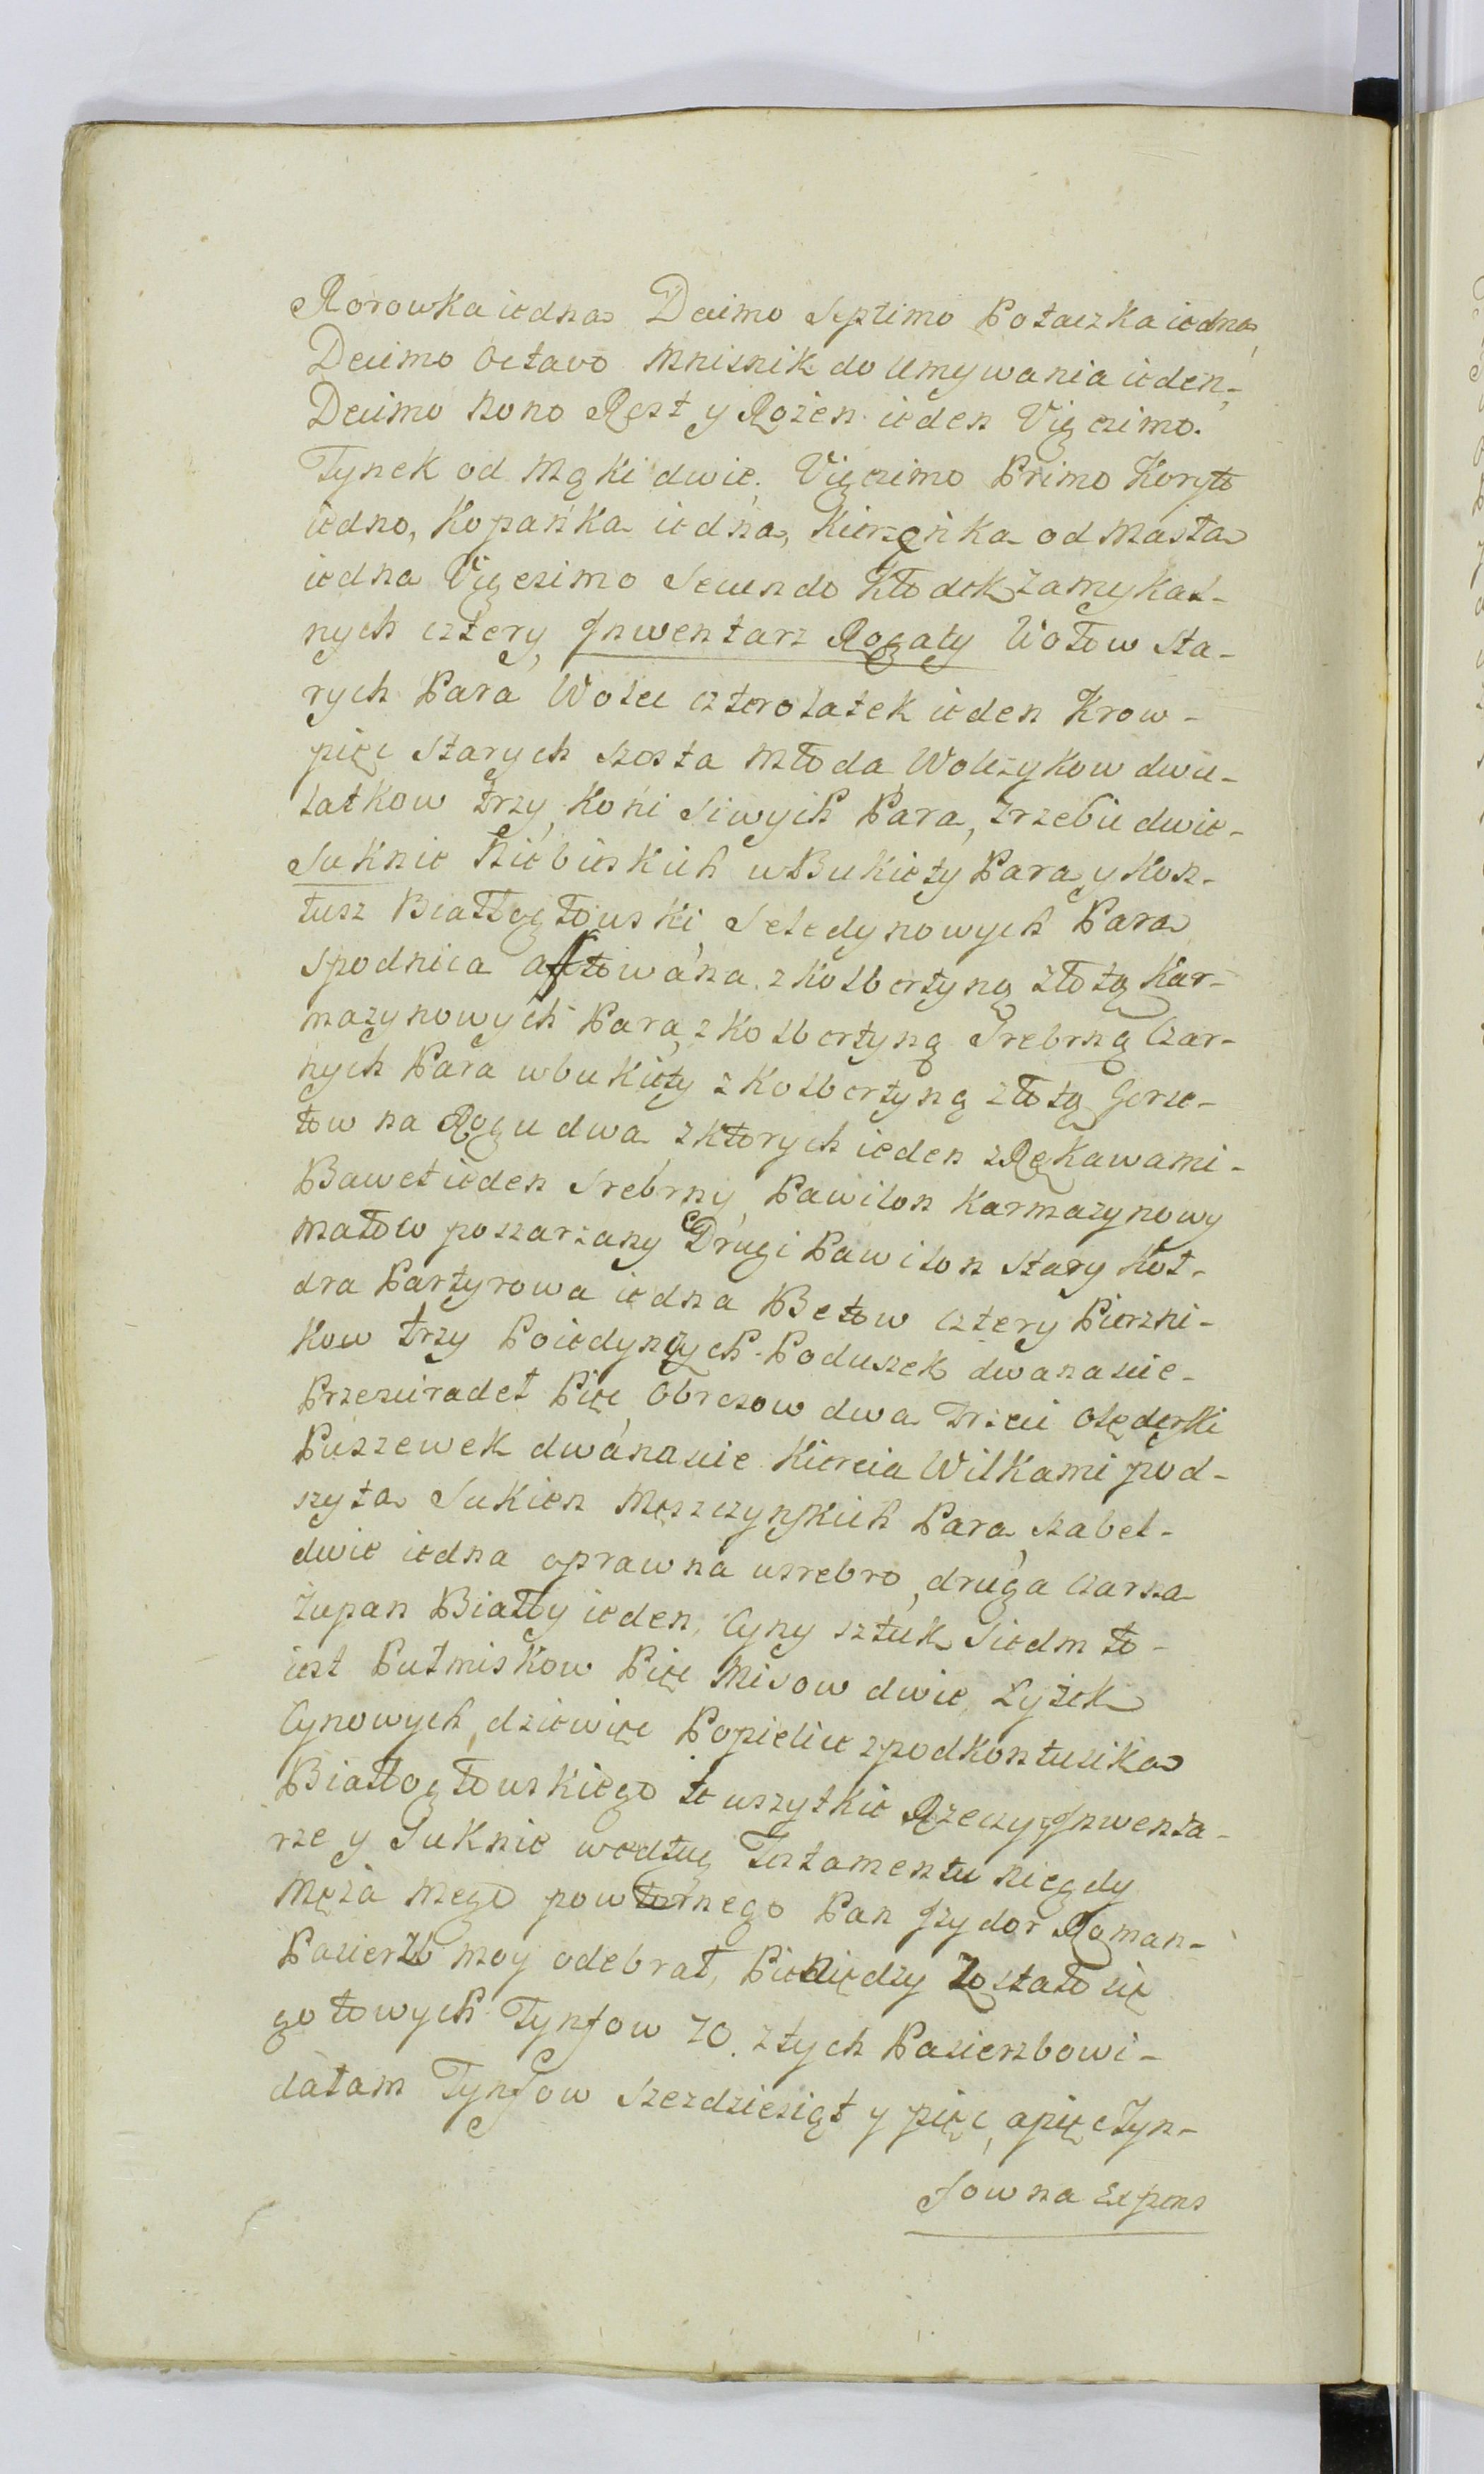 Rorowka iedna Decimo Septimo Połaczka iedna,
Decimo Octavo Mnisnik do Umywania ieden,
Decimo Nono Rest y Rożen ieden Vigesimo.
Tynek od Mąki dwie, Vigesimo Primo Koryto
iedno, Kopańka iedna, Kierzęńka od Masła
iedna Vigesimo Secundo Kłodek zamykal-
nych cztery, Inwentarz Rogaty Wołow sta-
rych Para Wolec czterolatek ieden Krow-
pięc Starych szosta Młoda, Wolczykow dwu-
latkow trzy, Koni Siwych Para, Zrzebie dwie-
Suknie Niebieskich w Bukiety Para y Kon-
tusz Biatłogłowski, Seledynowych Para
Spodnica aftowana z Kolbertyną złotą Kar-
mazynowych Para, z Kolbertyną Srebrną Czar-
nych Para w bukiety z Kolbertyną złotą Gorse-
tow na Rogu dwa z ktorych ieden z Rękawami-
Bawet ieden Srebrny, Pawilon Karmazynowy
matow poszarzany Drugi Pawilon stary Koł-
dra Partyrowa iedna Betow cztery Pierzni-
kow trzy Poiedynczych Poduszek dwanascie-
Przescieradeł Pięc, Obrusow dwa trzeci Olęderski
Puszewek dwanascie Kiereia Wilkami pod-
szyta Sukien Męszczynskich Para, szabel-
dwie iedna oprawna w srebro, druga Czarna
Żupan Biatły ieden, Cyny sztuk Siedm to-
iest Pułmiskow Pięc Misow dwie, Łyżek
Cynowych dziewięc Popielice z pod kontusika
Biatłogłowskiego te wszytkie Rzeczy y Inwenta-
rze y Suknie według Testamentu niegdy
Męża Mego powtornego Pan Izydor Roman-
Pasierzb moy odebrał, Pieniędzy Zostało się
gotowych Tynfow 70. z tych Pasierzbowi-
dałam Tynfow szezdziesiąt y pięc, a pięc Tyn-
fow na Expens